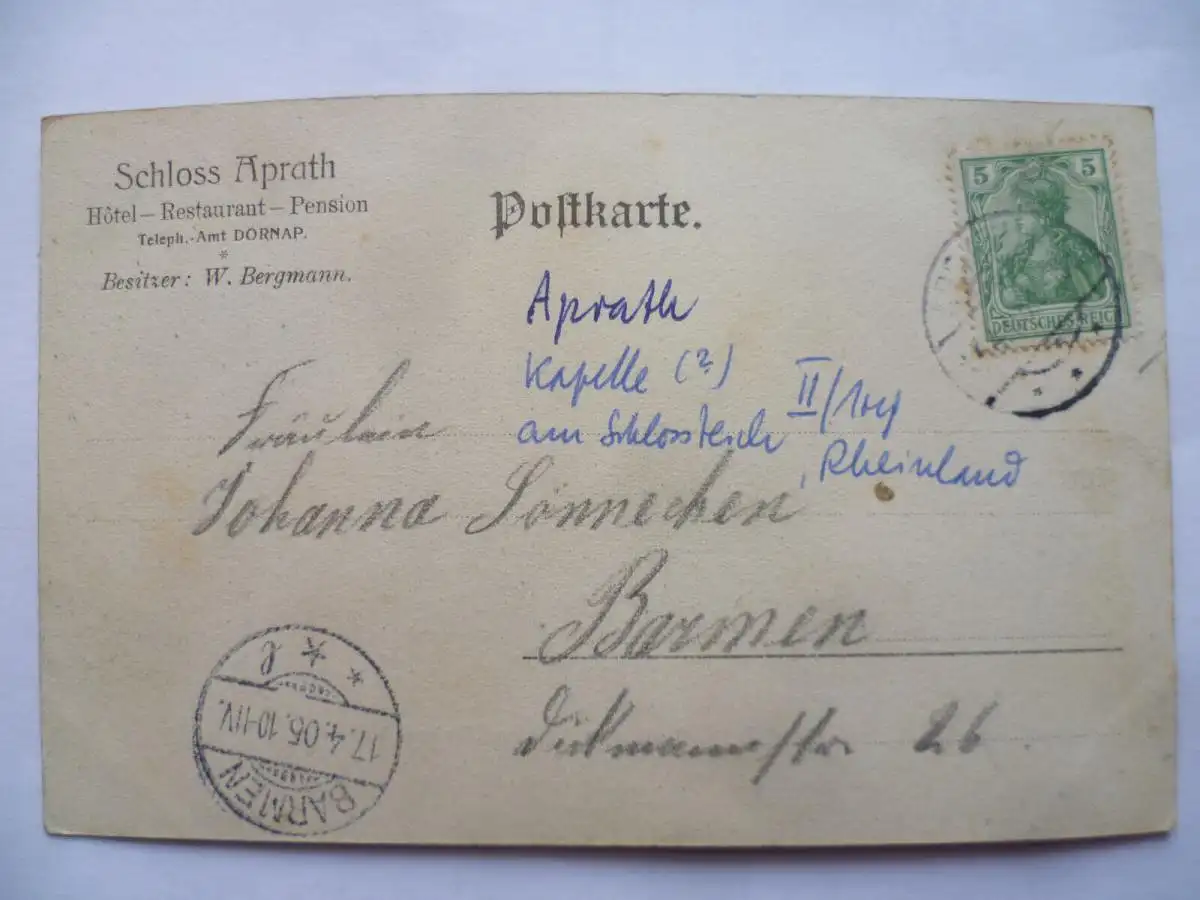 Schloss Aprath
Hôtel – Restaurant – Pension
Teleph.-Amt DORNAP.
*
Besitzer: W. Bergmann.
Postkarte.
5 5
DEUTSCHES REICH
Aprath
Kapelle (?)
am Schlossteich II/
, Rheinland
Fräulein
Johanna Sönnechen
Barmen
26
* * * l
17.4.05.10-11V.
BARMEN